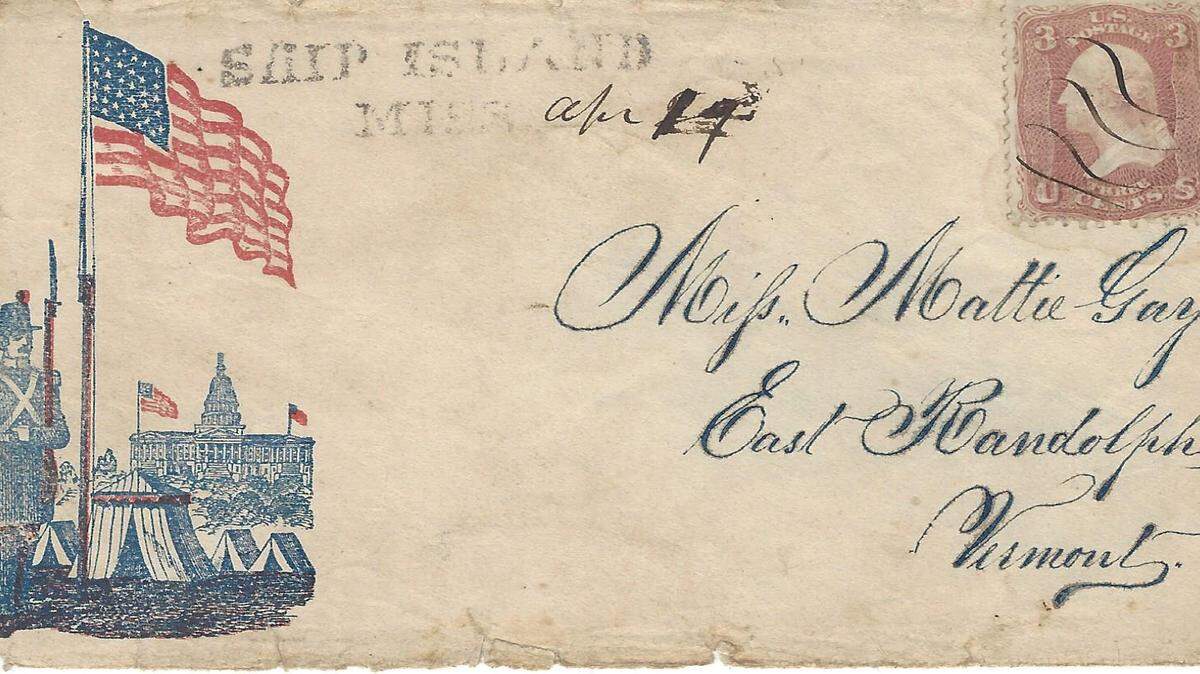 SHIP ISLAND
MISS.
apr
3 U.S. POSTAGE 3
U THREE CENTS S
Miſs. Mattie Gay
East Randolph
Vermont.